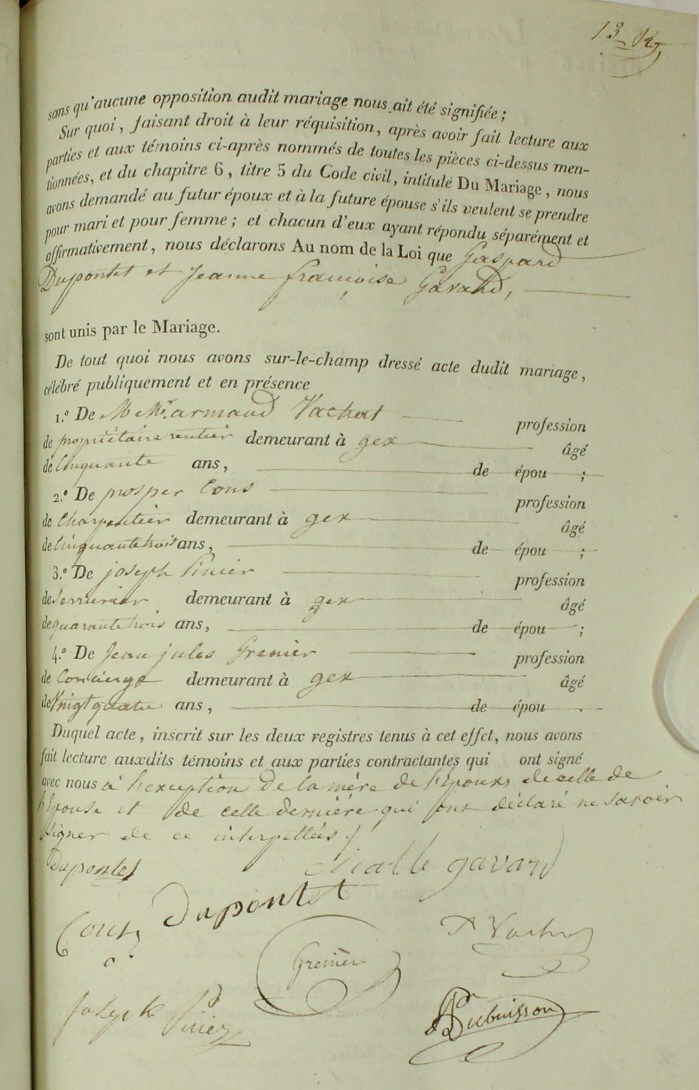 sans qu'aucune opposition audit mariage nous ait été signifiée ;
Sur quoi, faisant droit à leur réquisition, après avoir fait lecture aux
parties et aux témoins ci-après nommés de toutes les pièces ci-dessus men-
tionnées, et du chapitre 6, titre 5 du Code civil, intitulé Du Mariage, nous
avons demandé au futur époux et à la future épouse s'ils veulent se prendre
pour mari et pour femme ; et chacun d'eux ayant répondu séparément et
affirmativement, nous déclarons Au nom de la Loi que Gaspard
Dupontet et Jeanne françoise Gavard,
sont unis par le Mariage.
De tout quoi nous avons sur-le-champ dressé acte dudit mariage,
célébré publiquement et en présence
1.º De M armand Vachat profession
de propriétaire rentier demeurant à gex âgé
de Cinquante ans, de épou ;
2.º De prosper Cons profession
de Charpentier demeurant à gex âgé
de Cinquante trois ans, de épou ;
3.º De joseph Pinier profession
de Serrurier demeurant à gex âgé
de quarante trois ans, de épou ;
4.º De Jean jules Grenier profession
de Concierge demeurant à gex âgé
de Vingt quatre ans, de épou .
Duquel acte, inscrit sur les deux registres tenus à cet effet, nous avons
fait lecture auxdits témoins et aux parties contractantes qui ont signé
avec nous à l'exception de la mère de l'Epoux, de celle de
l'Epouse et de celle dernière qui ont déclaré ne savoir
signer de ce interpellés /
Dupontet gavard
Dupontet
Cons
Grenier
Joseph
Dubuisson